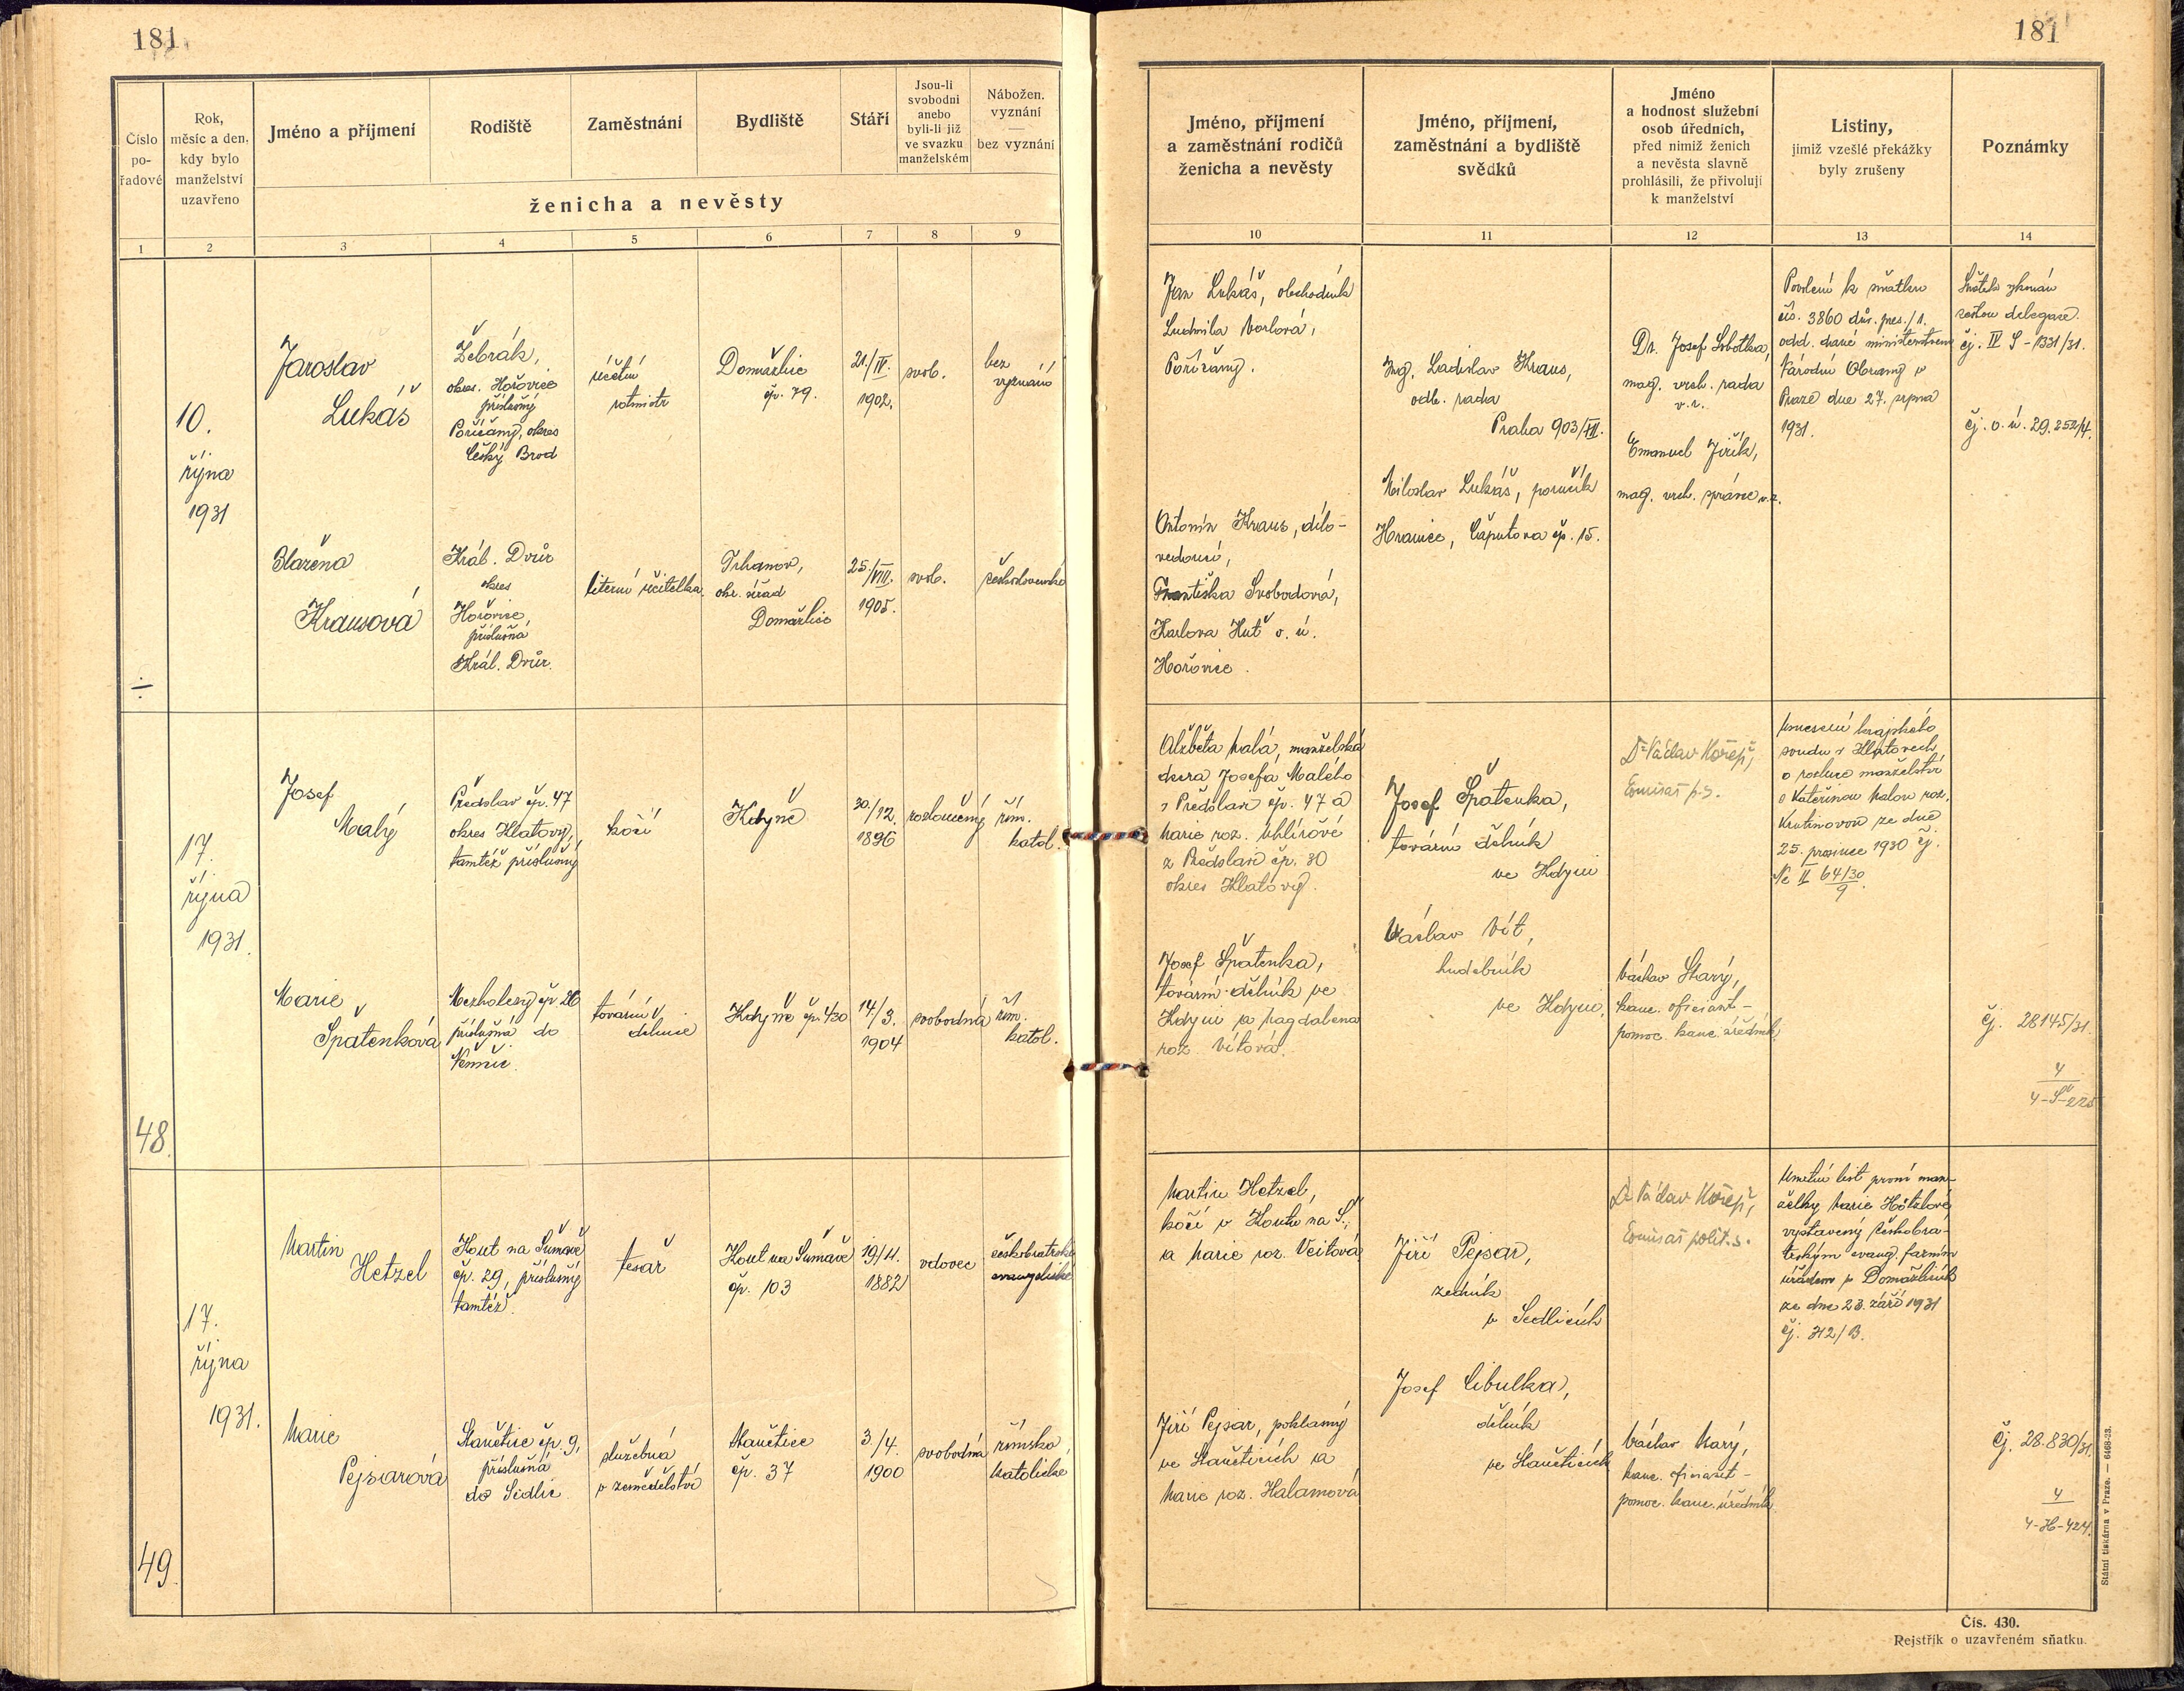 181
Číslo
po-
řadové
Rok,
měsíc a den,
kdy bylo
manželství
uzavřeno
Jméno a příjmení
Rodiště
Zaměstnání
Bydliště
Stáří
Jsou-li
svobodni
anebo
byli-li již
ve svazku
manželském
Nábožen.
vyznání
—
bez vyznání
ženicha a nevěsty
1
2
3
4
5
6
7
8
9
10.
října
1931
Jaroslav
Lukáš
Žebrák,
okres. Hořovice
příslušný
Poříčany, okres
Český Brod
účetní
rotmistr
Domažlice
čp. 79.
21./IV.
1902.
svob.
bez
vyznání
Blažena
Krausová
Král. Dvůr
okres
Hořovice,
příslušná
Král. Dvůr.
literní učitelka
Trhanov,
okr. úřad
Domažlice
25./VIII.
1905.
svob.
československé
÷
17.
října
1931.
Josef
Malý
Předslav čp. 47
okres Klatovy,
tamtéž příslušný
kočí
Kdyně
30./12.
1896
rozloučený
řím.
katol.
Marie
Špatenková
Mezholezy čp 26
příslušná do
Němčic.
tovární
dělnice
Kdyně čp. 430
14./3.
1904
svobodná
řím.
katol.
48.
17.
října
1931.
Martin
Hetzel
Kout na Šumavě
čp. 29, příslušný
tamtéž.
tesař
Kout na Šumavě
čp. 103
19/11.
1882
vdovec
českobratrské
evangelické
Marie
Pejsarová
Stanětice čp. 9,
příslušná
do Sedlic
služebná
v zemědělství
Stanětice
čp. 37
3./4.
1900
svobodná
římsko
katolické
49.
181
Jméno, příjmení
a zaměstnání rodičů
ženicha a nevěsty
Jméno, příjmení,
zaměstnání a bydliště
svědků
Jméno
a hodnost služební
osob úředních,
před nimiž ženich
a nevěsta slavně
prohlásili, že přivolují
k manželství
Listiny,
jimiž vzešlé překážky
byly zrušeny
Poznámky
10
11
12
13
14
Jan Lukáš, obchodník
Ludmila Vorlová,
Poříčany.
Antonín Kraus, dílo-
vedoucí,
Františka Svobodová,
Karlova Huť o. ú.
Hořovice.
Ing. Ladislav Kraus,
odb. rada
Praha 903/XII.
Miloslav Lukáš, poručík
Hranice, Čaputova čp. 15.
Dr. Josef Sobotka,
mag. vrch. rada
v.r.
Emanuel Jiřík,
mag. vrch. správce v.r.
Povolení k sňatku
čís. 3860 dův. pres./1.
odd. dané ministerstvem
Národní Obrany v
Praze dne 27. srpna
1931.
Sňatek vykonán
cestou delegace.
čj. IV S - 1331/31.
čj. o. ú. 29.252/4.
Alžběta Malá, manželská
dcera Josefa Malého
z Předslavi čp. 47 a
Marie roz. Uhlířové
z Předslavi čp. 30
okres Klatovy.
Josef Špatenka,
tovární dělník ve
Kdyni a Magdalena
roz. Vítová.
Josef Špatenka,
tovární dělník
ve Kdyni
Václav Vít,
hudebník
ve Kdyni,
Dr Václav Kořejš,
komisař p.s.
Václav Starý,
kanc. oficiant-
pomoc. kanc. úředník.
Usnesení krajského
soudu v Klatovech
o rozluce manželství
s Kateřinou Malou roz.
Krutinovou ze dne
25. prosince 1930 čj.
Nc II 64/30
9.
čj. 28145/31.
4
4-Š-225
Martin Hetzel,
kočí v Koutu na Š.,
a Marie roz. Veitová
Jiří Pejsar, poklasný
ve Staněticích a
Marie roz. Halamová
Jiří Pejsar,
zedník
v Sedlicích
Josef Cibulka,
dělník
ve Staněticích
Dr Václav Kořejš,
komisař polit. s.
Václav Starý,
kanc. oficiant-
pomoc. kanc. úředník.
Úmrtní list první man-
želky Marie Hötzlové
vystavený českobra-
trským evang. farním
úřadem v Domažlicích
ze dne 23. září 1931
čj. 312/B.
čj. 28.830/31.
4
4-H-424.
Státní tiskárna v Praze. — 6468-23.
Čís. 430.
Rejstřík o uzavřeném sňatku.